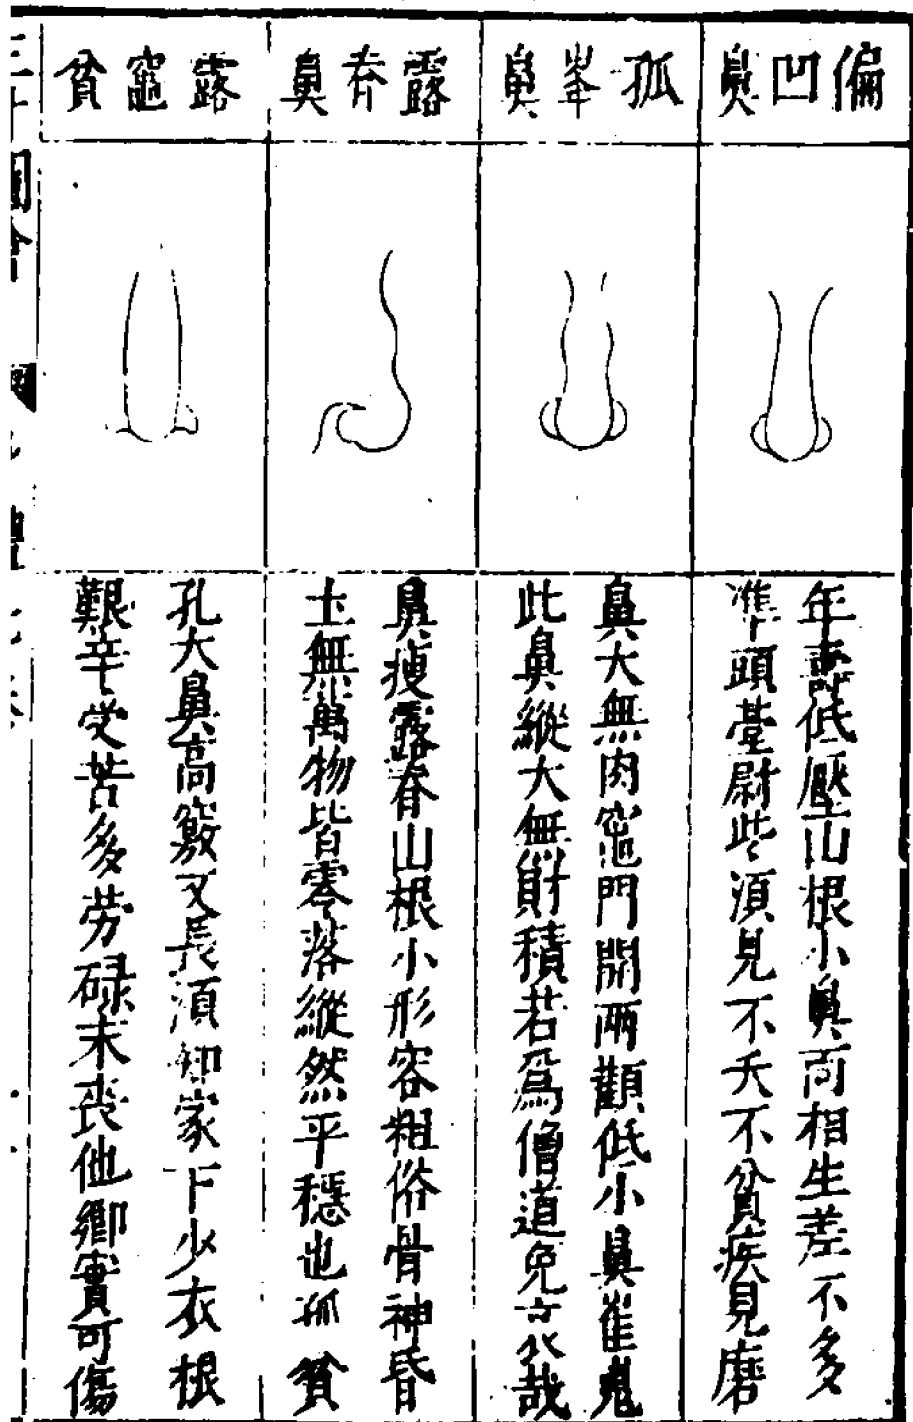 偏凹鼻
年壽低壓山根小鼻面相生差不多
準頭臺尉些須見不夭不貧疾見磨
孤峯鼻
鼻大無肉竈門開兩顴低小鼻崔嵬
此鼻縱大無財積若為僧道免哉
露脊鼻
鼻瘦露脊山根小形容粗俗骨神昏
土無萬物皆零落縱然平穩也孤貧
露竈貧
孔大鼻高竅又長須知家下少衣粮
艱辛受苦多勞碌末喪他鄉實可傷
三才圖會